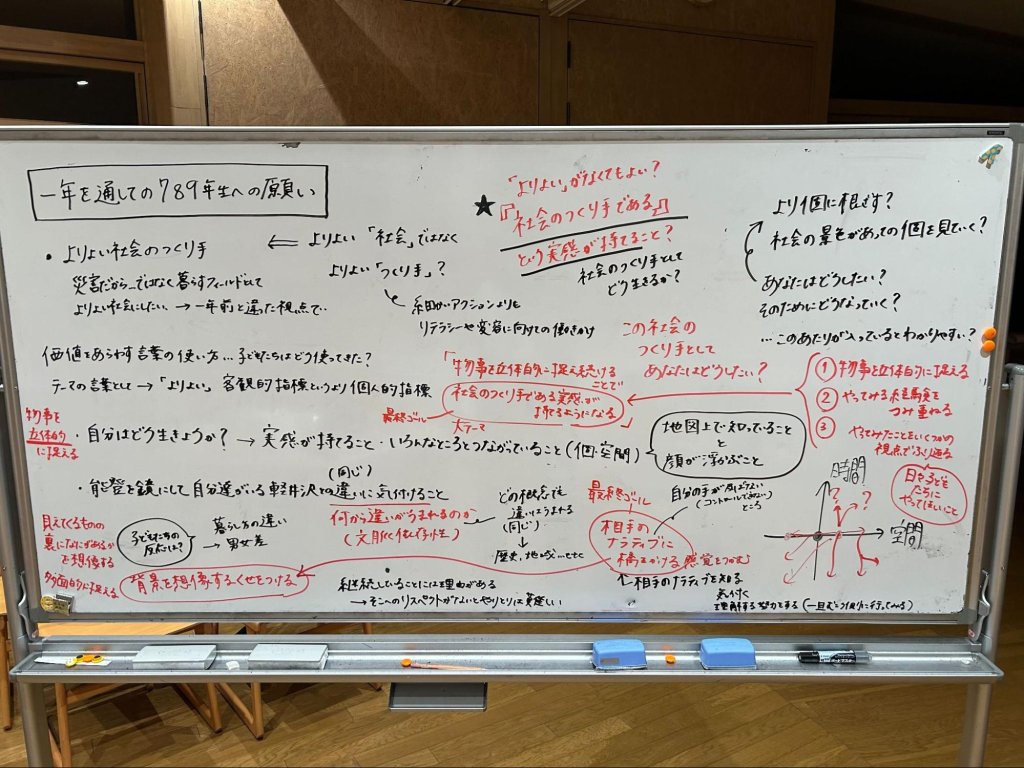 一年を通しての789年生への願い
・よりよい社会のつくり手
⇐ よりよい「社会」ではなく
よりよい「つくり手」?
災害だから_ではなく暮らすフィールドとして
よりよい社会にしたい → 一年前と違った視点で‥
細かいアクションよりも
リテラシーや変容に向けての働きかけ
「よりよい」がなくてもよい?
★『社会のつくり手である』
という実感が持てること?
社会のつくり手として
どう生きるか?
より個に根ざす?
社会の景色があっての個を見ていく?
あなたはどうしたい?
そのためにどうなっていく?
…このあたりが入っているとわかりやすい?
価値をあらわす言葉の使い方…子どもたちはどう使ってきた?
テーマの言葉として→「よりよい」客観的指標というより個人的指標
この社会の
つくり手として
あなたはどうしたい?
「物事を立体的に捉え続ける
ことで
社会のつくり手である実感が
持てるようになる」
最終ゴール
大テーマ
① 物事を立体的に捉える
② やってみる経験を
つみ重ねる
③ やってみたことをいくつかの
視点でふり返る
日々子ども
たちに
やってほしいこと
物事を
立体的
に捉える
・自分はどう生きようか? → 実感が持てること・いろんなところとつながっていること(個・空間)
地図上で知っていること
と
顔が浮かぶこと
・能登を鏡にして自分達がいる軽井沢との違いに気付けること
(同じ)
何から違いがうまれるのか
(文脈に依存性)
どの概念でも
違いはうまれる
(同じ)
↓
歴史、地域、…
見えてくるものの
裏になにがあるか
を想像する
多面的に捉える
子どもたちの
反応は?
暮らし方の違い
→ 男女差
背景を想像するくせをつける
継続していることには理由がある
→ そこへのリスペクトがないとやりとりは難しい
最終ゴール
相手の
ナラティブに
橋をかける感覚をつかむ
自分の手が及ばない
(コントロールできない)
ところ
↑相手のナラティブを知る
気付く
理解する努力をする(一旦むこう側に行ってみる)
時間
空間
? ?